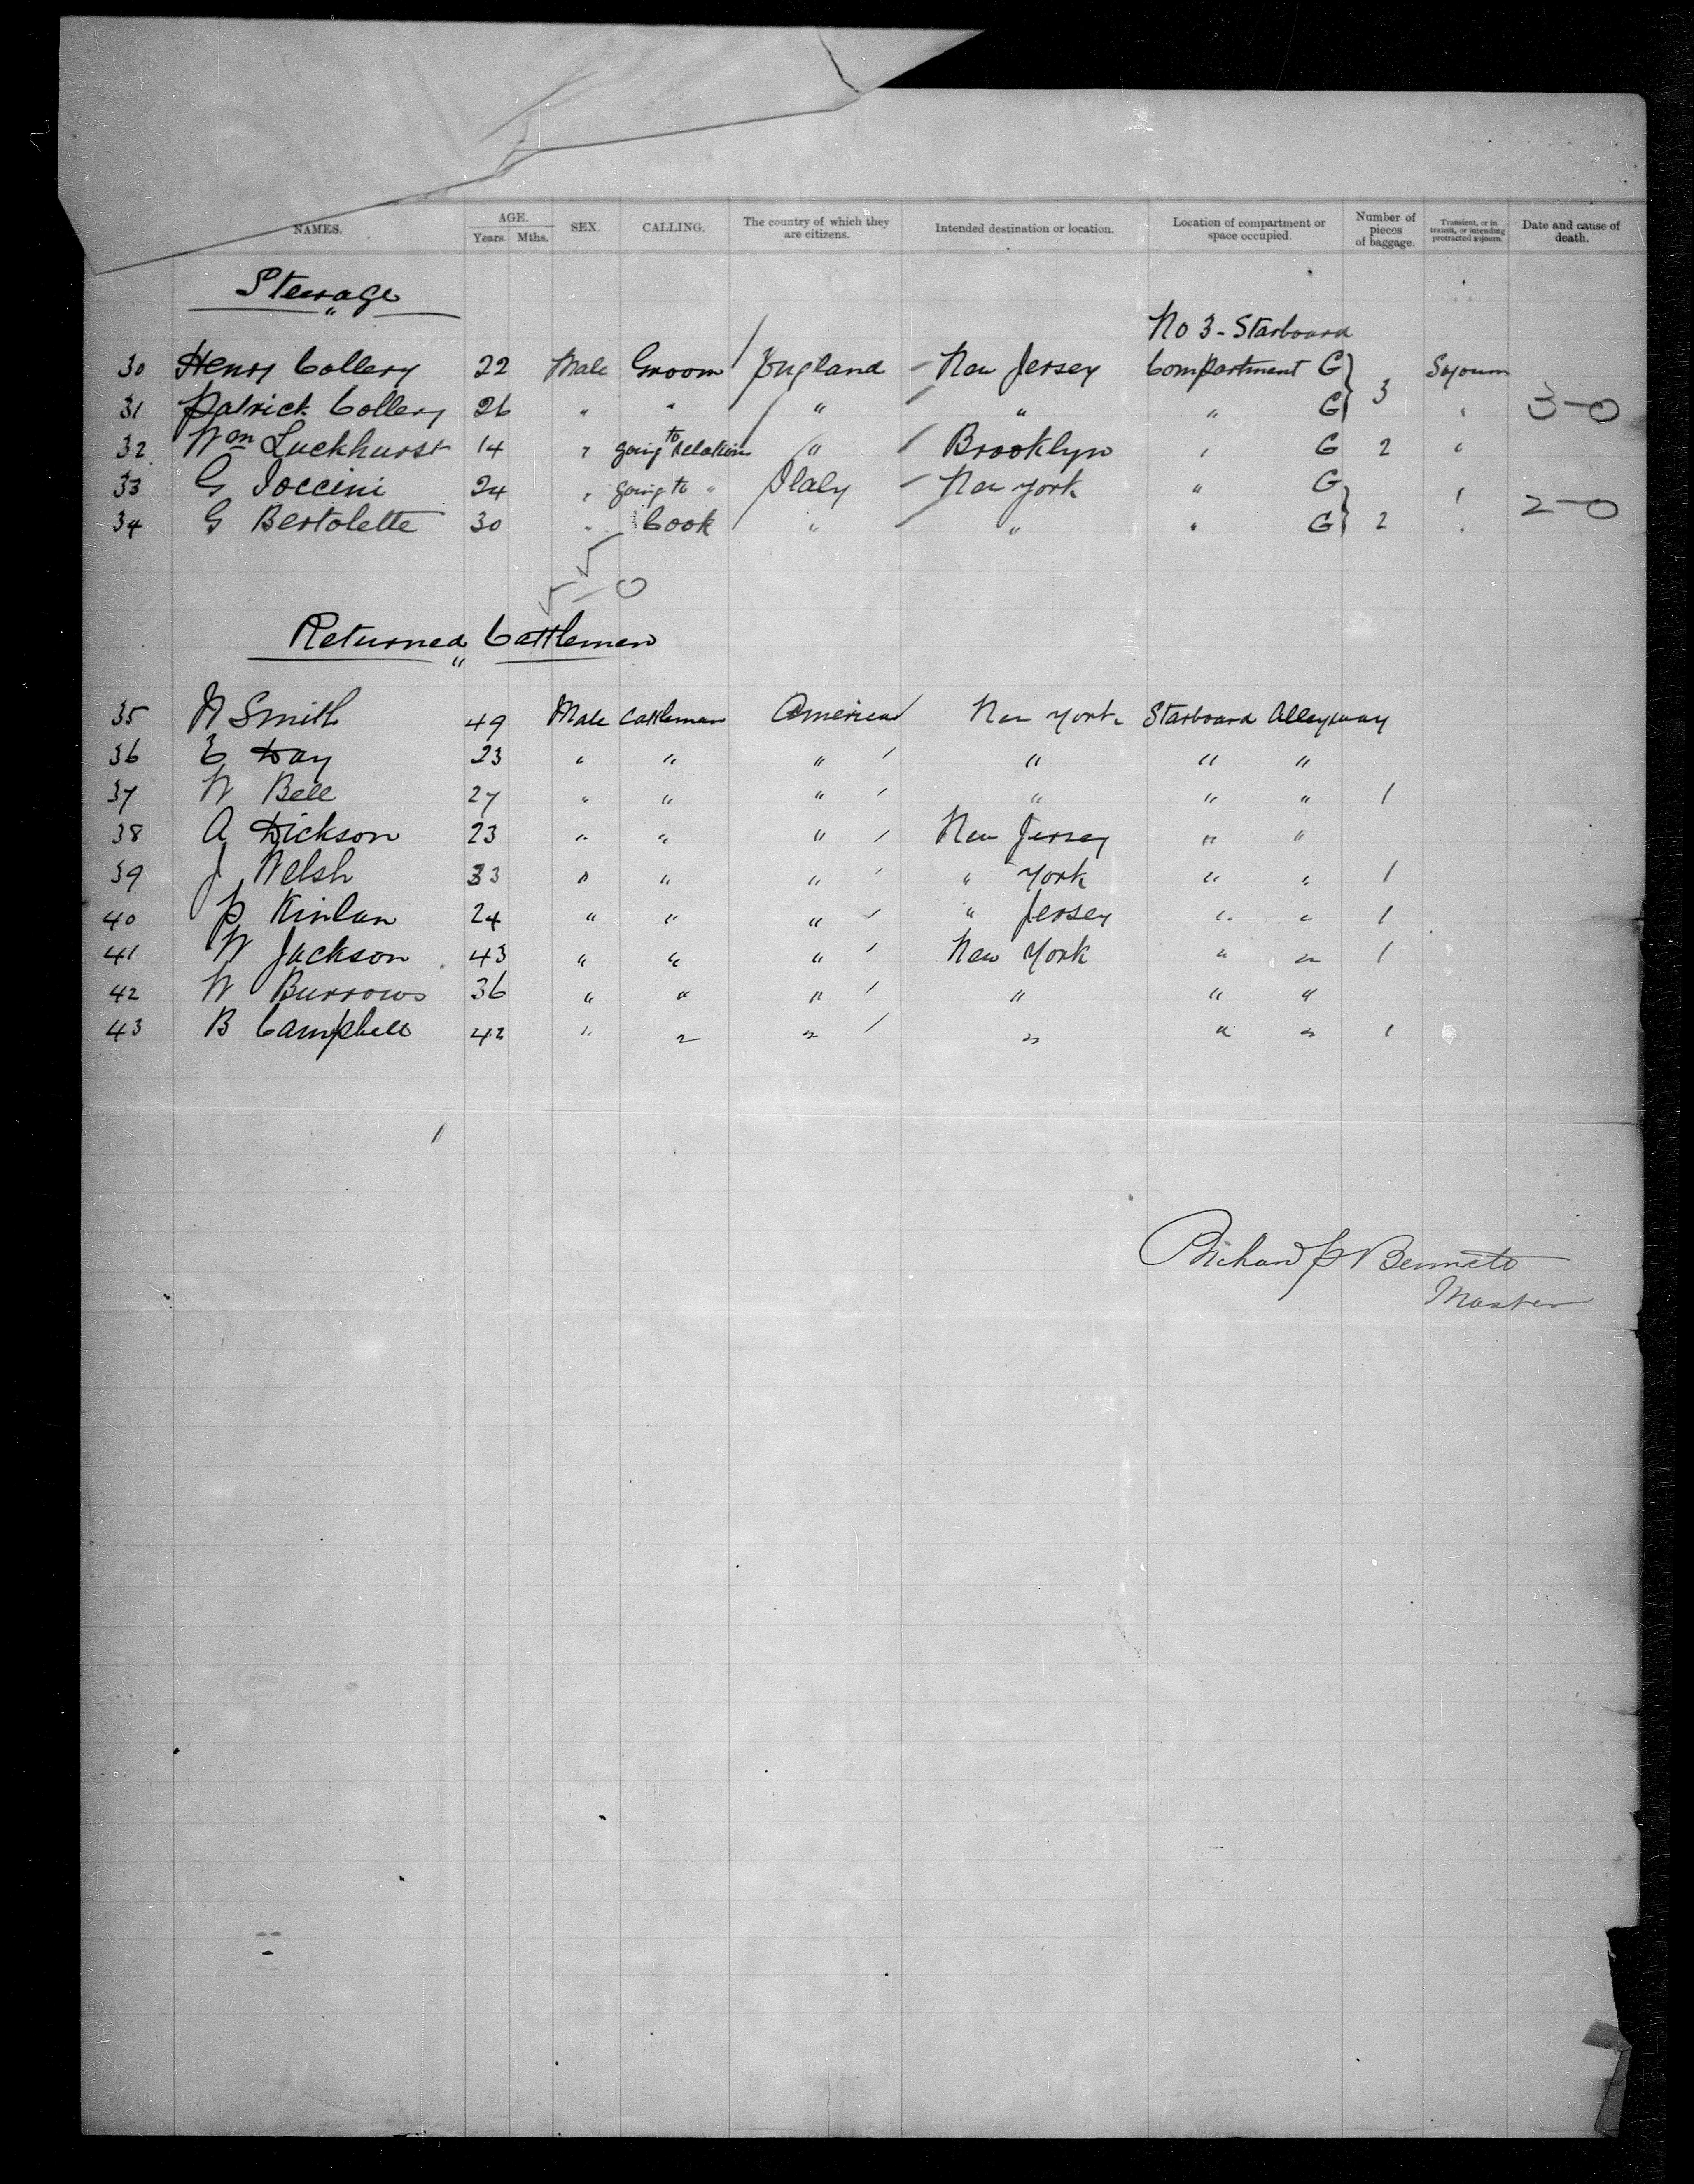 NAMES. AGE. Years. Mths. SEX. CALLING. The country of which they are citizens. Intended destination or location. Location of compartment or space occupied. Number of pieces of baggage. Transient, or in transit, or intending protracted sojourn. Date and cause of death.
Steerage
"
No 3 - Starboard
30 Henry Collery 22 Male Groom England New Jersey Compartment G } 3 Sojourn
31 Patrick Collery 26 " " " " " G " 3-0
32 Wm Luckhurst 14 " going to relation " Brooklyn " G 2 "
33 G Joccini 24 " going to " Italy New York " G "
34 G Bertolette 30 " Cook " " " G } 2 " 2-0
5
5-0
Returned Cattlemen
"
35 W Smith 49 Male Cattleman American New York Starboard Alleyway
36 E Day 23 " " " " " "
37 W Bell 27 " " " " " " 1
38 A Dickson 23 " " " New Jersey " "
39 J Welsh 33 " " " " York " " 1
40 P Kinlan 24 " " " " Jersey " " 1
41 W Jackson 43 " " " New York " " 1
42 W Burrows 36 " " " " " "
43 B Campbell 42 " " " " " " 1
Richard P Bennett
Master